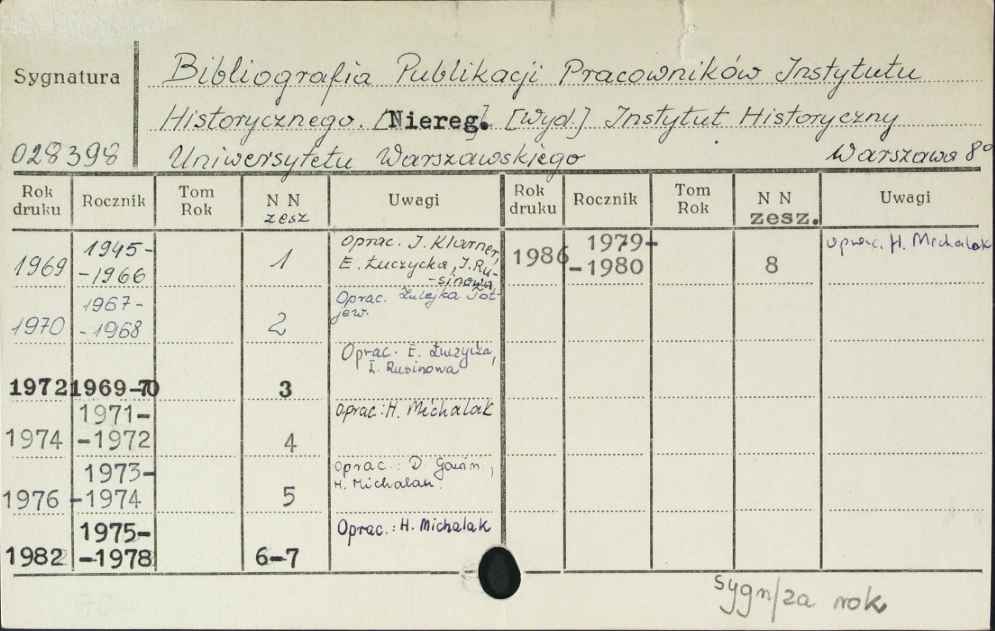 Sygnatura
Bibliografia Publikacji Pracowników Instytutu
Historycznego. [Niereg]. [Wyd.] Instytut Historyczny
028398 Uniwersytetu Warszawskiego Warszawa 8°
Rok druku Rocznik Tom Rok N N zesz Uwagi Rok druku Rocznik Tom Rok N N zesz. Uwagi
1969 1945-
-1966 1 Oprac. J. Klarner,
E. Łuczycka, I. Ru-
-sinowa,
1970 1967-
-1968 2 Oprac. Zulejka
1972 1969-70 3 Oprac. E.
I. Rusinowa
1974 1971-
-1972 4 Oprac: H. Michalak
1976 1973-
-1974 5 Oprac.: D
H.
1982 1975-
-1978 6-7 Oprac.: H. Michalak
1986 1979-
-1980 8 Oprac. H. Michalak
Sygn/za rok